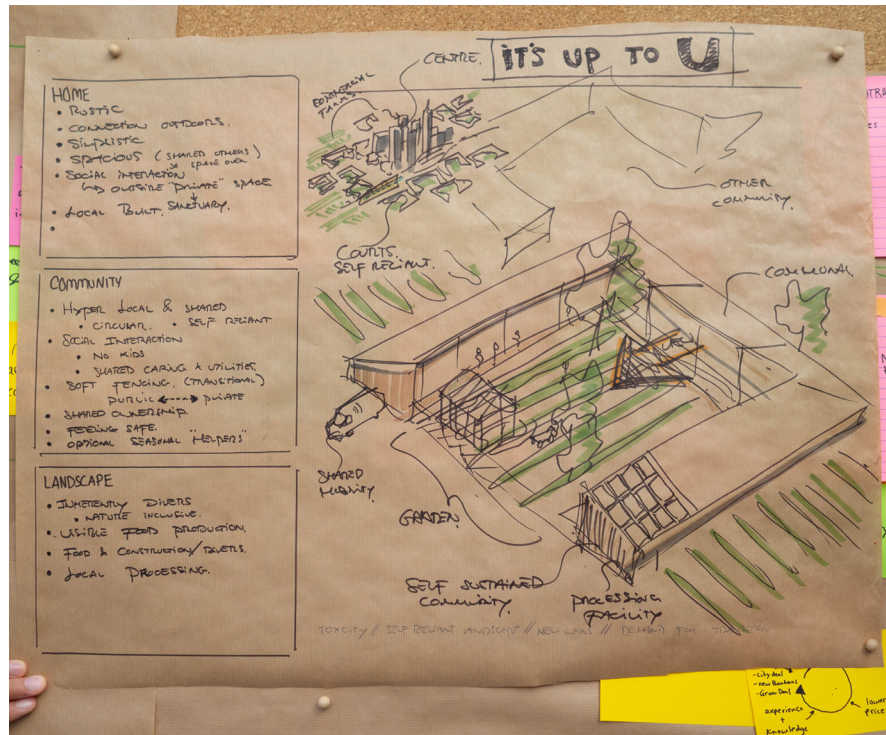 IT'S UP TO U
HOME
• RUSTIC
• CONNECTION OUTDOORS.
• SIMPLISTIC
• SPACIOUS (SHARED OTHERS)
SPACE OVER
• SOCIAL INTERACTION
OUTSIDE "PRIVATE" SPACE.
SANCTUARY.
• LOCAL BUILT.
•
COMMUNITY
• HYPER LOCAL & SHARED
• CIRCULAR. • SELF RELIANT
• SOCIAL INTERACTION
• NO KIDS
• SHARED CARING + UTILITIES.
• SOFT FENCING. (TRANSITIONAL)
PUBLIC ↔ PRIVATE
• SHARED OWNERSHIP.
• FEELING SAFE.
• OPTIONAL SEASONAL "HELPERS"
LANDSCAPE
• INHERENTLY DIVERS
• NATURE INCLUSIVE.
• VISIBLE FOOD PRODUCTION.
• FOOD & CONSTRUCTION/DIVERS.
• LOCAL PROCESSING.
CENTRE.
COMMERCIAL
FARMS
OTHER
COMMUNITY.
COURTS.
SELF RELIANT.
COMMUNAL
SHARED
MOBILITY.
GARDEN.
SELF SUSTAINED
COMMUNITY.
PROCESSING
FACILITY
TOXCITY // SELF RELIANT LANDSCAPE // NEW LAWS // DEMAND
- City deal
- new Bauhaus
- Green Deal
experience
+
knowledge
lower
price